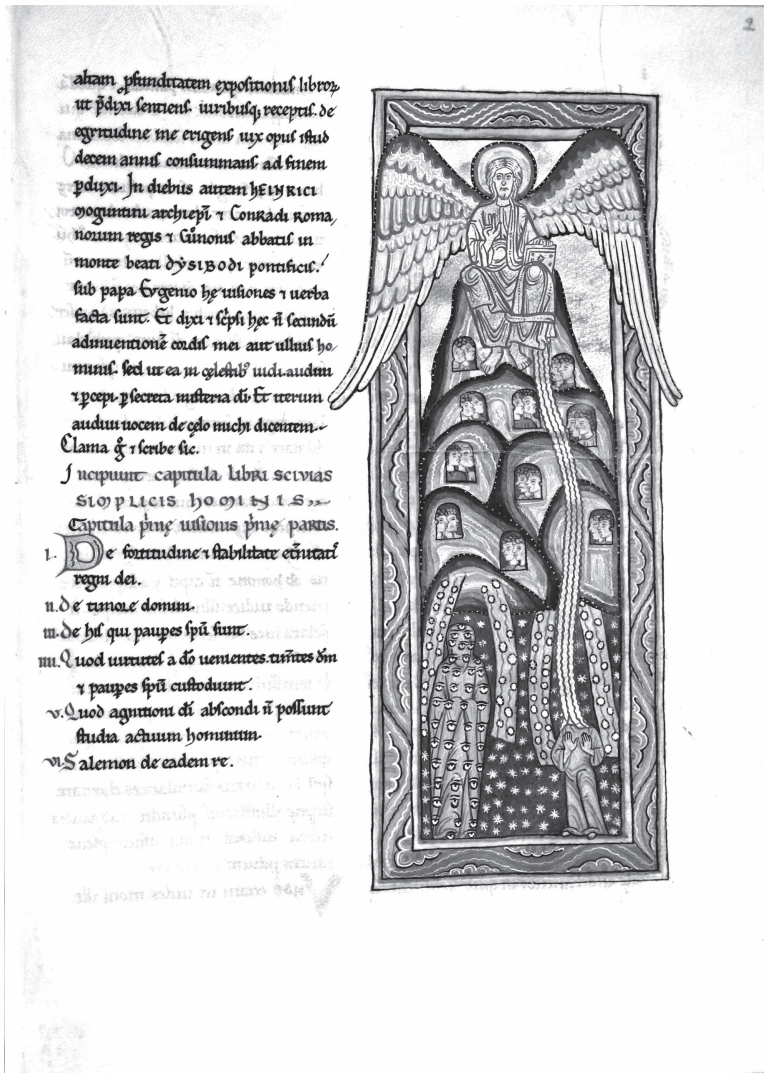 2
altam ꝓfunditatem expositionis libroꝝ
ut p̄dixi sentiens. uiribusq; receptis. de
egritudine me erigens uix opus istud
decem annis consummans ad finem
ꝑduxi. In diebus autem heinrici
moguntini archiep̄i ⁊ Conradi roma,
norum regis ⁊ Cu̓nonis abbatis in
monte beati dẏsibodi pontificis.
sub papa Eugenio hę uisiones ⁊ uerba
facta sunt. Et dixi ⁊ sc̄psi hęc n̄ secundū
adinuentionē cordis mei aut ullius ho
minis. sed ut ea in cęlestib᾽ uidi. audiui
⁊ ꝑcepi. ꝑ secreta misteria di̅. Et iterum
audiui uocem de cęlo michi dicentem.
Clama g̊ ⁊ scribe sic.
Incipiunt capitula libri scivias
simplicis hominis.,,
Capitula p̓mę uisionis p̓mę partis.
i. De fortitudine ⁊ stabilitate et̄nitatis
regni dei.
ii. De timore domini.
iii. De his qui pauꝑes sp̄u sunt.
iiii. Quod uirtutes a do̅ uenientes. tim̄tes dm̅
⁊ pauꝑes sp̄u custodiunt.
v. Quod agnitioni di̅ abscondi n̄ possunt
studia actuum hominum.
vi. Salemon de eadem re.